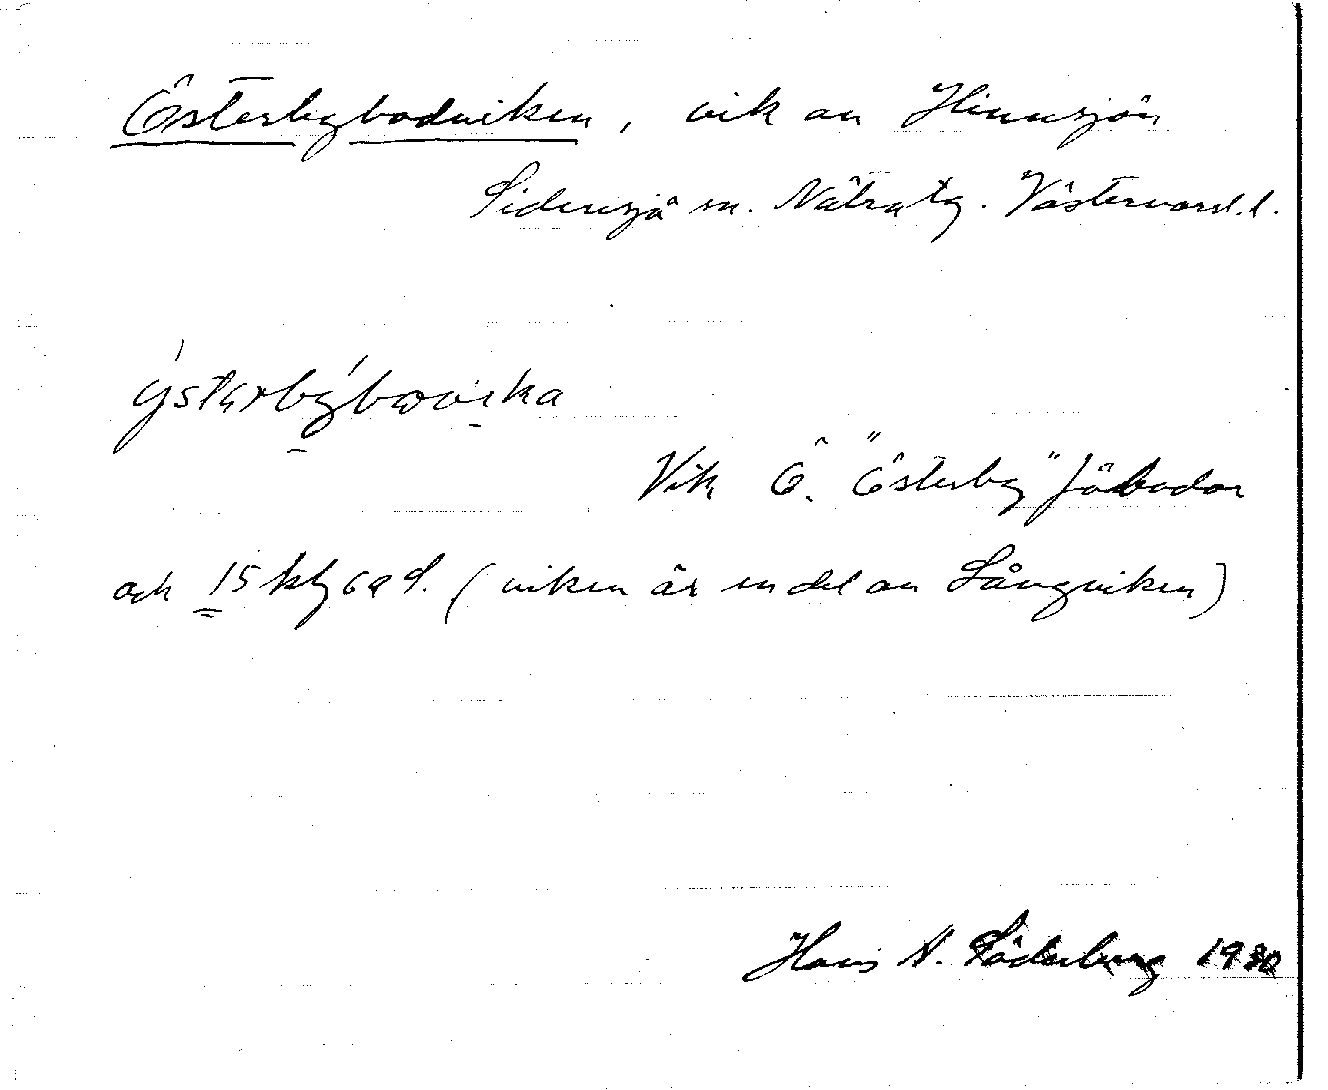 Österbybodviken, vik av Hinnsjön
Sidensjö sn. Nätra tg. Västernorrl.l.
Vik Ö. "Österby" fäbodar
och 15 km (viken är en del av Långviken)
Hans A. Söderberg 1930